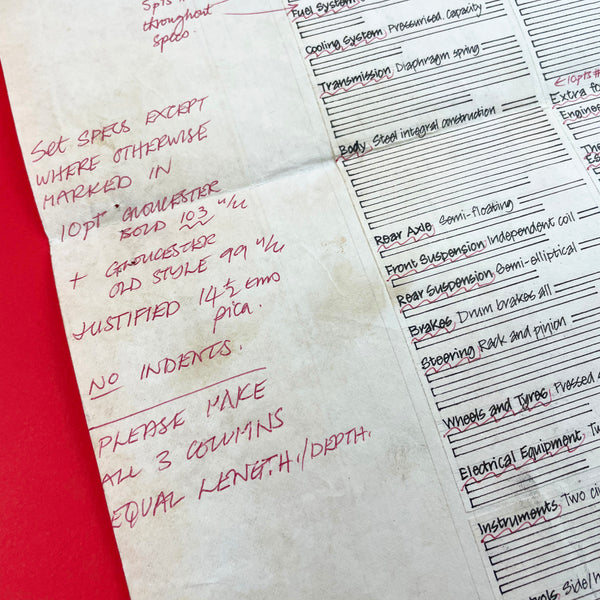 5pts
throughout
specs.
Set SPECS EXCEPT
WHERE OTHERWISE
MARKED IN
10pt GLOUCESTER
BOLD 103 u/lc
+ GLOUCESTER
OLD STYLE 99 u/lc
JUSTIFIED 14½ ems
pica.
NO INDENTS.
PLEASE MAKE
ALL 3 COLUMNS
EQUAL LENGTH./DEPTH.
Fuel System
Cooling System Pressurised. Capacity
Transmission Diaphragm spring
Body Steel integral construction
Rear Axle Semi-floating
Front Suspension Independent coil
Rear Suspension Semi-elliptical
Brakes Drum brakes all
Steering Rack and pinion
Wheels and Tyres Pressed
Electrical Equipment
Instruments Two
Side/
10pts
Extra fo
Engine